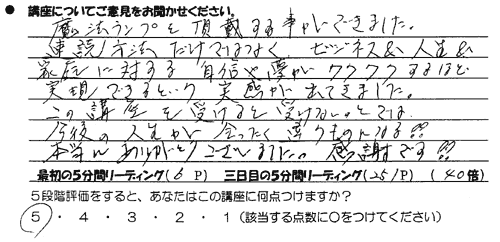 ● 講座についてご意見をお聞かせください。
魔法ランプを頂戴する事ができました。
速読の方法だけではなく、ビジネス&人生&
家庭に対する自信や夢がワクワクするほど
実現できるという実感が出てきました。
この講座を受けると受けないとでは
今後の人生が全ったく違うものになる!!
本当にありがとうございました。感謝です!!
最初の5分間リーディング(6 P) 三日目の5分間リーディング(251P) (40倍)
5段階評価をすると、あなたはこの講座に何点つけますか?
5・4・3・2・1(該当する点数に○をつけてください)